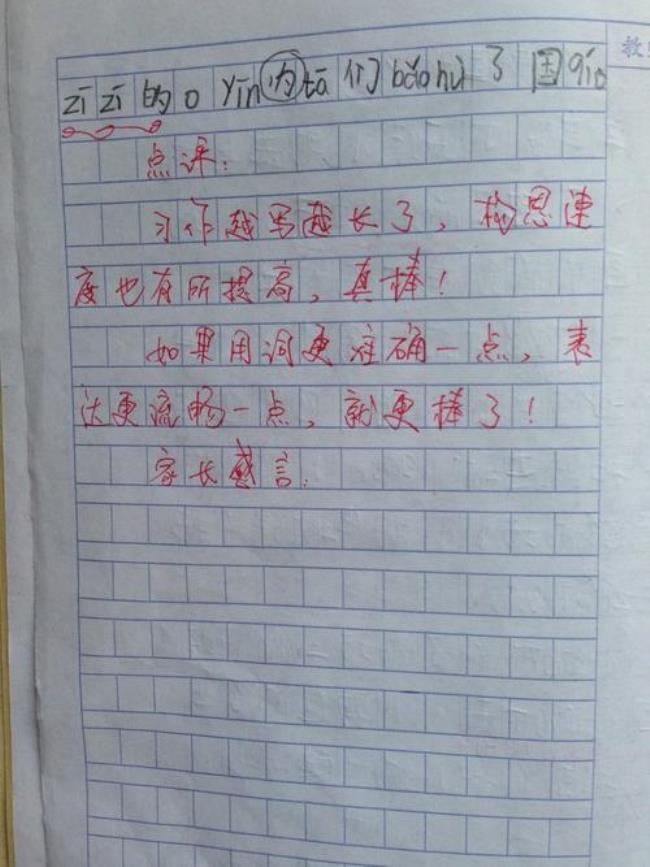 zī zī 的。yīn 内 tā 们 bǎo hù 了 国 qía
点评:
习作越写越长了,构思速
度也有所提高,真棒!
如果用词更准确一点,表
达更流畅一点,就更棒了!
家长感言: